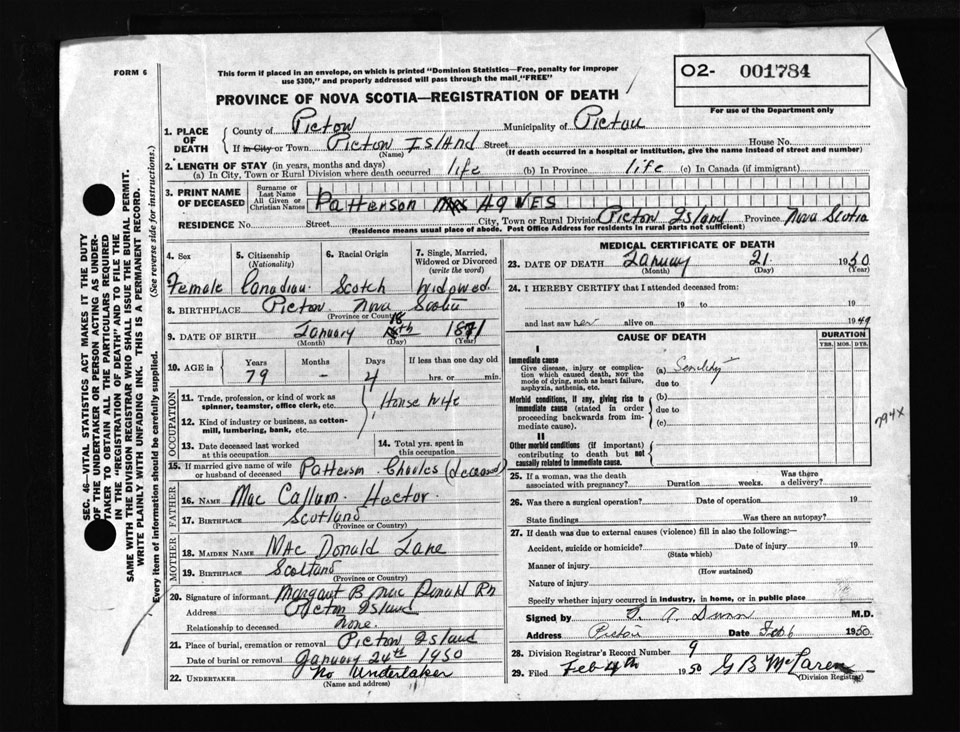 FORM 6
This form if placed in an envelope, on which is printed "Dominion Statistics—Free, penalty for improper
use $300," and properly addressed will pass through the mail "FREE"
O2- 001784
For use of the Department only
PROVINCE OF NOVA SCOTIA—REGISTRATION OF DEATH
1. PLACE OF DEATH
County of Pictou Municipality of Pictou
If in City or Town Pictou Island Street House No.
(Name) (If death occurred in a hospital or institution, give the name instead of street and number)
2. LENGTH OF STAY (in years, months and days)
(a) In City, Town or Rural Division where death occurred life (b) In Province life (c) In Canada (if immigrant)
3. PRINT NAME OF DECEASED
Surname or Last Name
All Given or Christian Names
Patterson Mrs AGNES
RESIDENCE No. Street City, Town or Rural Division Pictou Island Province Nova Scotia
(Residence means usual place of abode. Post Office Address for residents in rural parts not sufficient)
4. Sex 5. Citizenship (Nationality) 6. Racial Origin 7. Single, Married, Widowed or Divorced (write the word)
Female Canadian Scotch Widowed
8. BIRTHPLACE Pictou Nova Scotia
(Province or Country)
9. DATE OF BIRTH January 18th 1871
(Month) (Day) (Year)
10. AGE in Years Months Days If less than one day old
79 - 4 hrs. or min.
OCCUPATION
11. Trade, profession or kind of work as
spinner, teamster, office clerk, etc.
House Wife
12. Kind of industry or business, as cotton-
mill, lumbering, bank, etc.
13. Date deceased last worked
at this occupation
14. Total yrs. spent in
this occupation
15. If married give name of wife
or husband of deceased Patterson Charles (deceased)
FATHER
16. NAME Mac Callum. Hector.
17. BIRTHPLACE Scotland
(Province or Country)
MOTHER
18. MAIDEN NAME MAc Donald Jane
19. BIRTHPLACE Scotland
(Province or Country)
20. Signature of informant Margaret B Mac Donald Rn
Address Pictou Island
Relationship to deceased none.
21. Place of burial, cremation or removal Pictou Island
Date of burial or removal January 24th 1950
22. UNDERTAKER No Undertaker
(Name and address)
MEDICAL CERTIFICATE OF DEATH
23. DATE OF DEATH January 21. 1950
(Month) (Day) (Year)
24. I HEREBY CERTIFY that I attended deceased from:
19 to 19
and last saw her alive on 1949
CAUSE OF DEATH
DURATION
YRS. MOS. DYS.
I
Immediate cause
Give disease, injury or complica-
tion which caused death, NOT the
mode of dying, such as heart failure,
asphyxia, asthenia, etc.
(a) Senility
due to
Morbid conditions, if any, giving rise to
immediate cause (stated in order
proceeding backwards from im-
mediate cause).
(b)
due to
(c)
794X
II
Other morbid conditions (if important)
contributing to death but not
causally related to immediate cause.
25. If a woman, was the death
associated with pregnancy? Duration weeks. Was there
a delivery?
26. Was there a surgical operation? Date of operation 19
State findings Was there an autopsy?
27. If death was due to external causes (violence) fill in also the following:
Accident, suicide or homicide? Date of injury 19
(State which)
Manner of injury
(How sustained)
Nature of injury
Specify whether injury occurred in industry, in home, or in public place
Signed by A. Dunn M.D.
Address Pictou Date Feb 6 1950
28. Division Registrar's Record Number 9
29. Filed Feb 4th 1950 G B McLaren
(Division Registrar)
SEC. 46—VITAL STATISTICS ACT MAKES IT THE DUTY
OF THE UNDERTAKER OR PERSON ACTING AS UNDER-
TAKER TO OBTAIN ALL THE PARTICULARS REQUIRED
IN THE "REGISTRATION OF DEATH" AND TO FILE THE
SAME WITH THE DIVISION REGISTRAR WHO SHALL ISSUE THE BURIAL PERMIT.
WRITE PLAINLY WITH UNFADING INK. THIS IS A PERMANENT RECORD.
Every item of information should be carefully supplied. (See reverse side for instructions.)